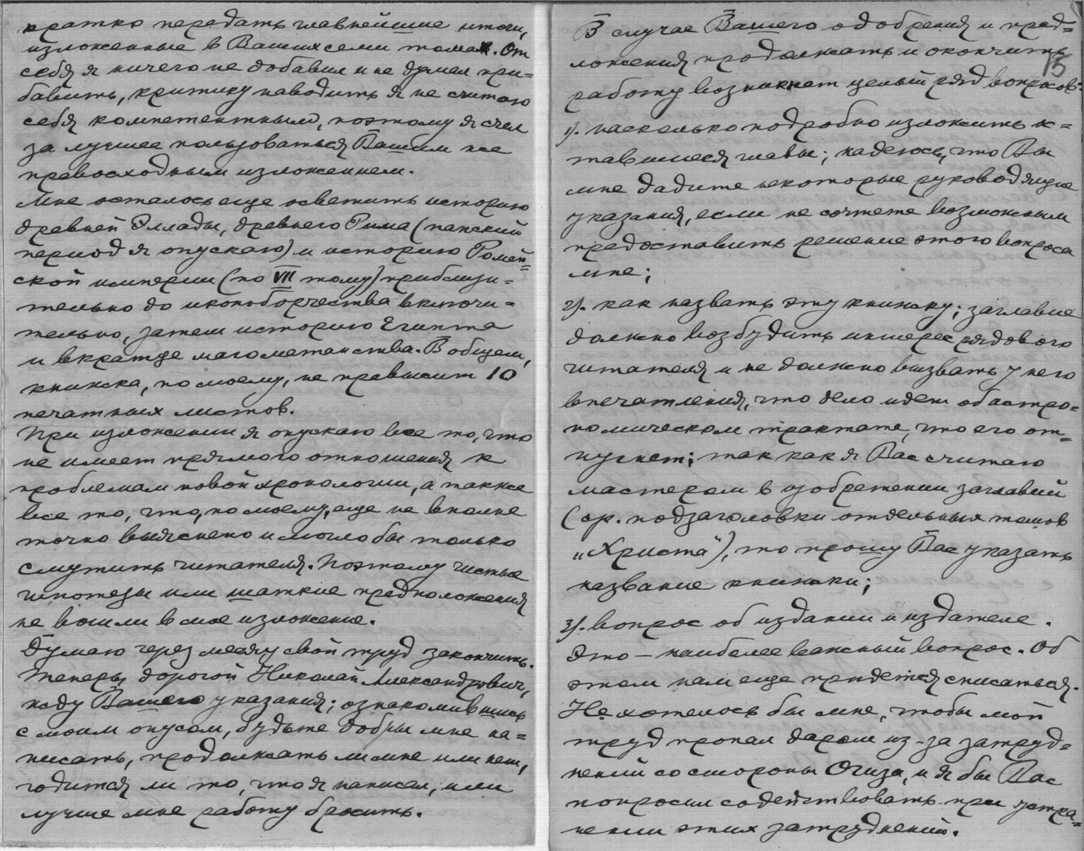 кратко передать главнейшие итоги,
изложенные в Ваших семи томах. От
себя я ничего не добавил и не думал при-
бавить, критику наводить я не считаю
себя компетентным, поэтому я счел
за лучшее пользоваться Вашим же
превосходным изложением.
Мне осталось еще осветить историю
древней Эллады, древнего Рима (папский
период я опускаю) и историю Ромей-
ской империи (по VII тому) приблизи-
тельно до иконоборчества включи-
тельно, затем историю Египта
и вкратце магометанства. В общем,
книжка, по моему, не превысит 10
печатных листов.
При изложении я опускаю все то, что
не имеет прямого отношения к
проблемам новой хронологии, а также
все то, что, по моему, еще не вполне
точно выяснено и могло бы только
смутить читателя. Поэтому чистые
гипотезы или шаткие предположения
не вошли в мое изложение.
Думаю через месяц свой труд закончить.
Теперь, дорогой Николай Александрович,
жду Вашего указания; ознакомившись
с моим опусом, будьте добры мне на-
писать, продолжать ли мне или нет,
годится ли то, что я написал, или
лучше мне работу бросить.
15
В случае Вашего одобрения и пред-
ложения продолжать и окончить
работу возникнет целый ряд вопросов:
1). насколько подробно изложить ос-
тавшиеся главы; надеюсь, что Вы
мне дадите некоторые руководящие
указания, если не сочтете возможным
предоставить решение этого вопроса
мне;
2). как назвать эту книжку; заглавие
должно возбудить интерес рядового
читателя и не должно вызвать у него
впечатления, что дело идет об астро-
номическом трактате, что его от-
пугнет; так как я Вас считаю
мастером в изобретении заглавий
(ср. подзаголовки отдельных томов
„Христа"), то прошу Вас указать
название книжки;
3). вопрос об издании и издателе.
Это – наиболее важный вопрос. Об
этом нам еще придется списаться.
Не хотелось бы мне, чтобы мой
труд пропал даром из-за затруд-
нений со стороны Огиза, и я бы Вас
попросил содействовать при устра-
нении этих затруднений.